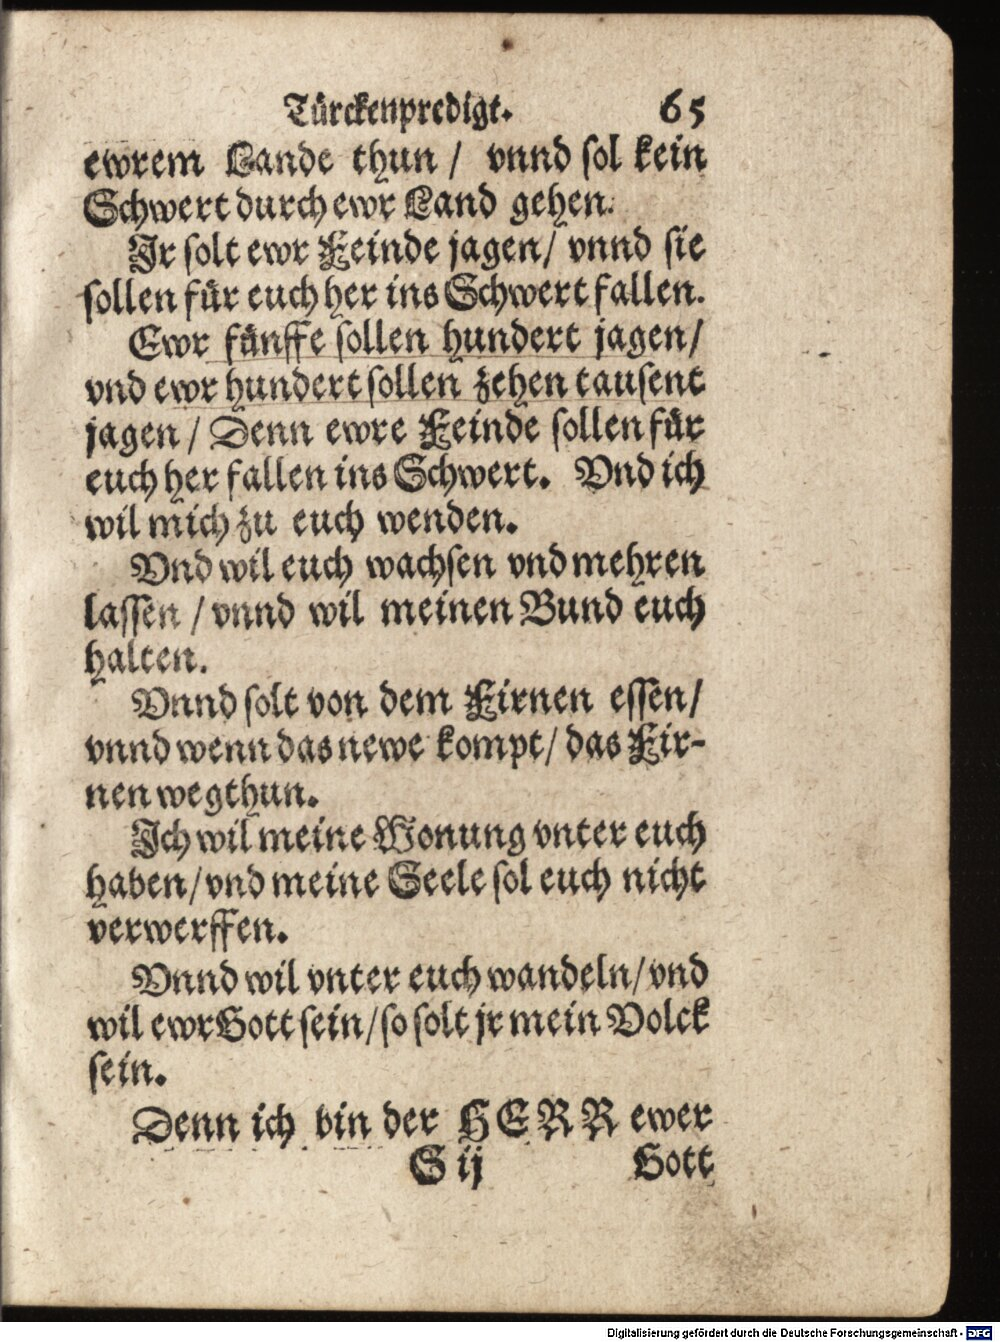 Türckenpredigt. 65
ewrem Lande thun / vnnd sol kein
Schwert durch ewr Land gehen.
Jr solt ewr Feinde jagen / vnnd sie
sollen für euch her ins Schwert fallen.
Ewr fünffe sollen hundert jagen /
vnd ewr hundert sollen zehen tausent
jagen / Denn ewre Feinde sollen für
euch her fallen ins Schwert. Vnd ich
wil mich zu euch wenden.
Vnd wil euch wachsen vnd mehren
lassen / vnnd wil meinen Bund euch
halten.
Vnnd solt von dem Firnen essen /
vnnd wenn das newe kompt / das Fir-
nen wegthun.
Jch wil meine Wonung vnter euch
haben / vnd meine Seele sol euch nicht
verwerffen.
Vnnd wil vnter euch wandeln / vnd
wil ewr Gott sein / so solt jr mein Volck
sein.
Denn ich bin der HERR ewer
S ij Gott
Digitalisierung gefördert durch die Deutsche Forschungsgemeinschaft - DFG